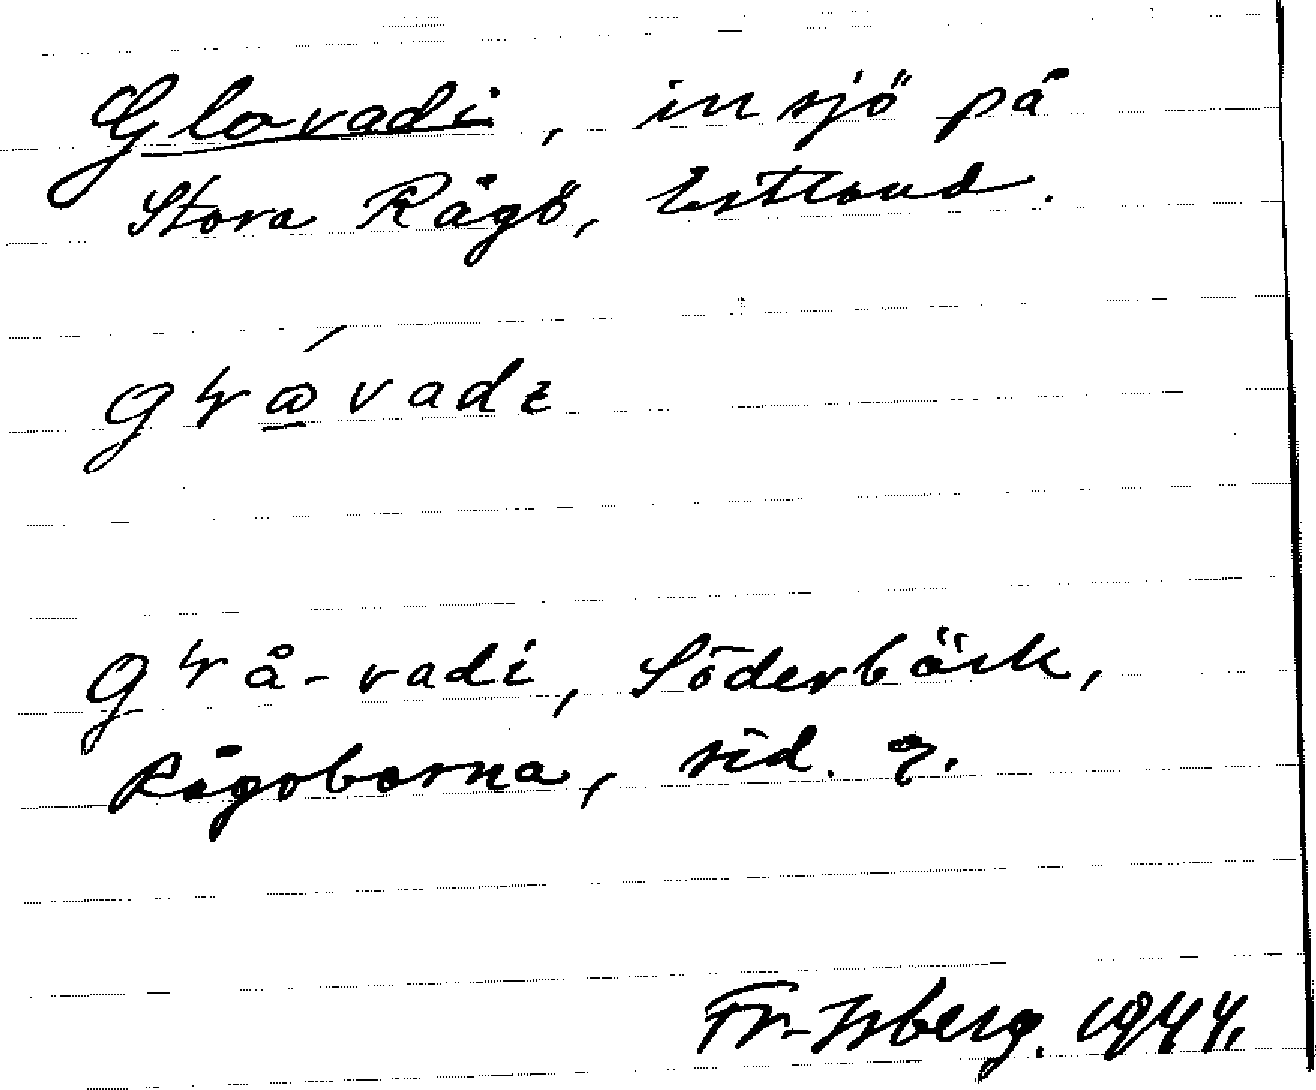 Glovadi, insjö på
Stora Rågö, Estland.
Glå-vadi, Söderbäck,
Rågöborna, sid. 7.
Fr. Isberg. 1944.